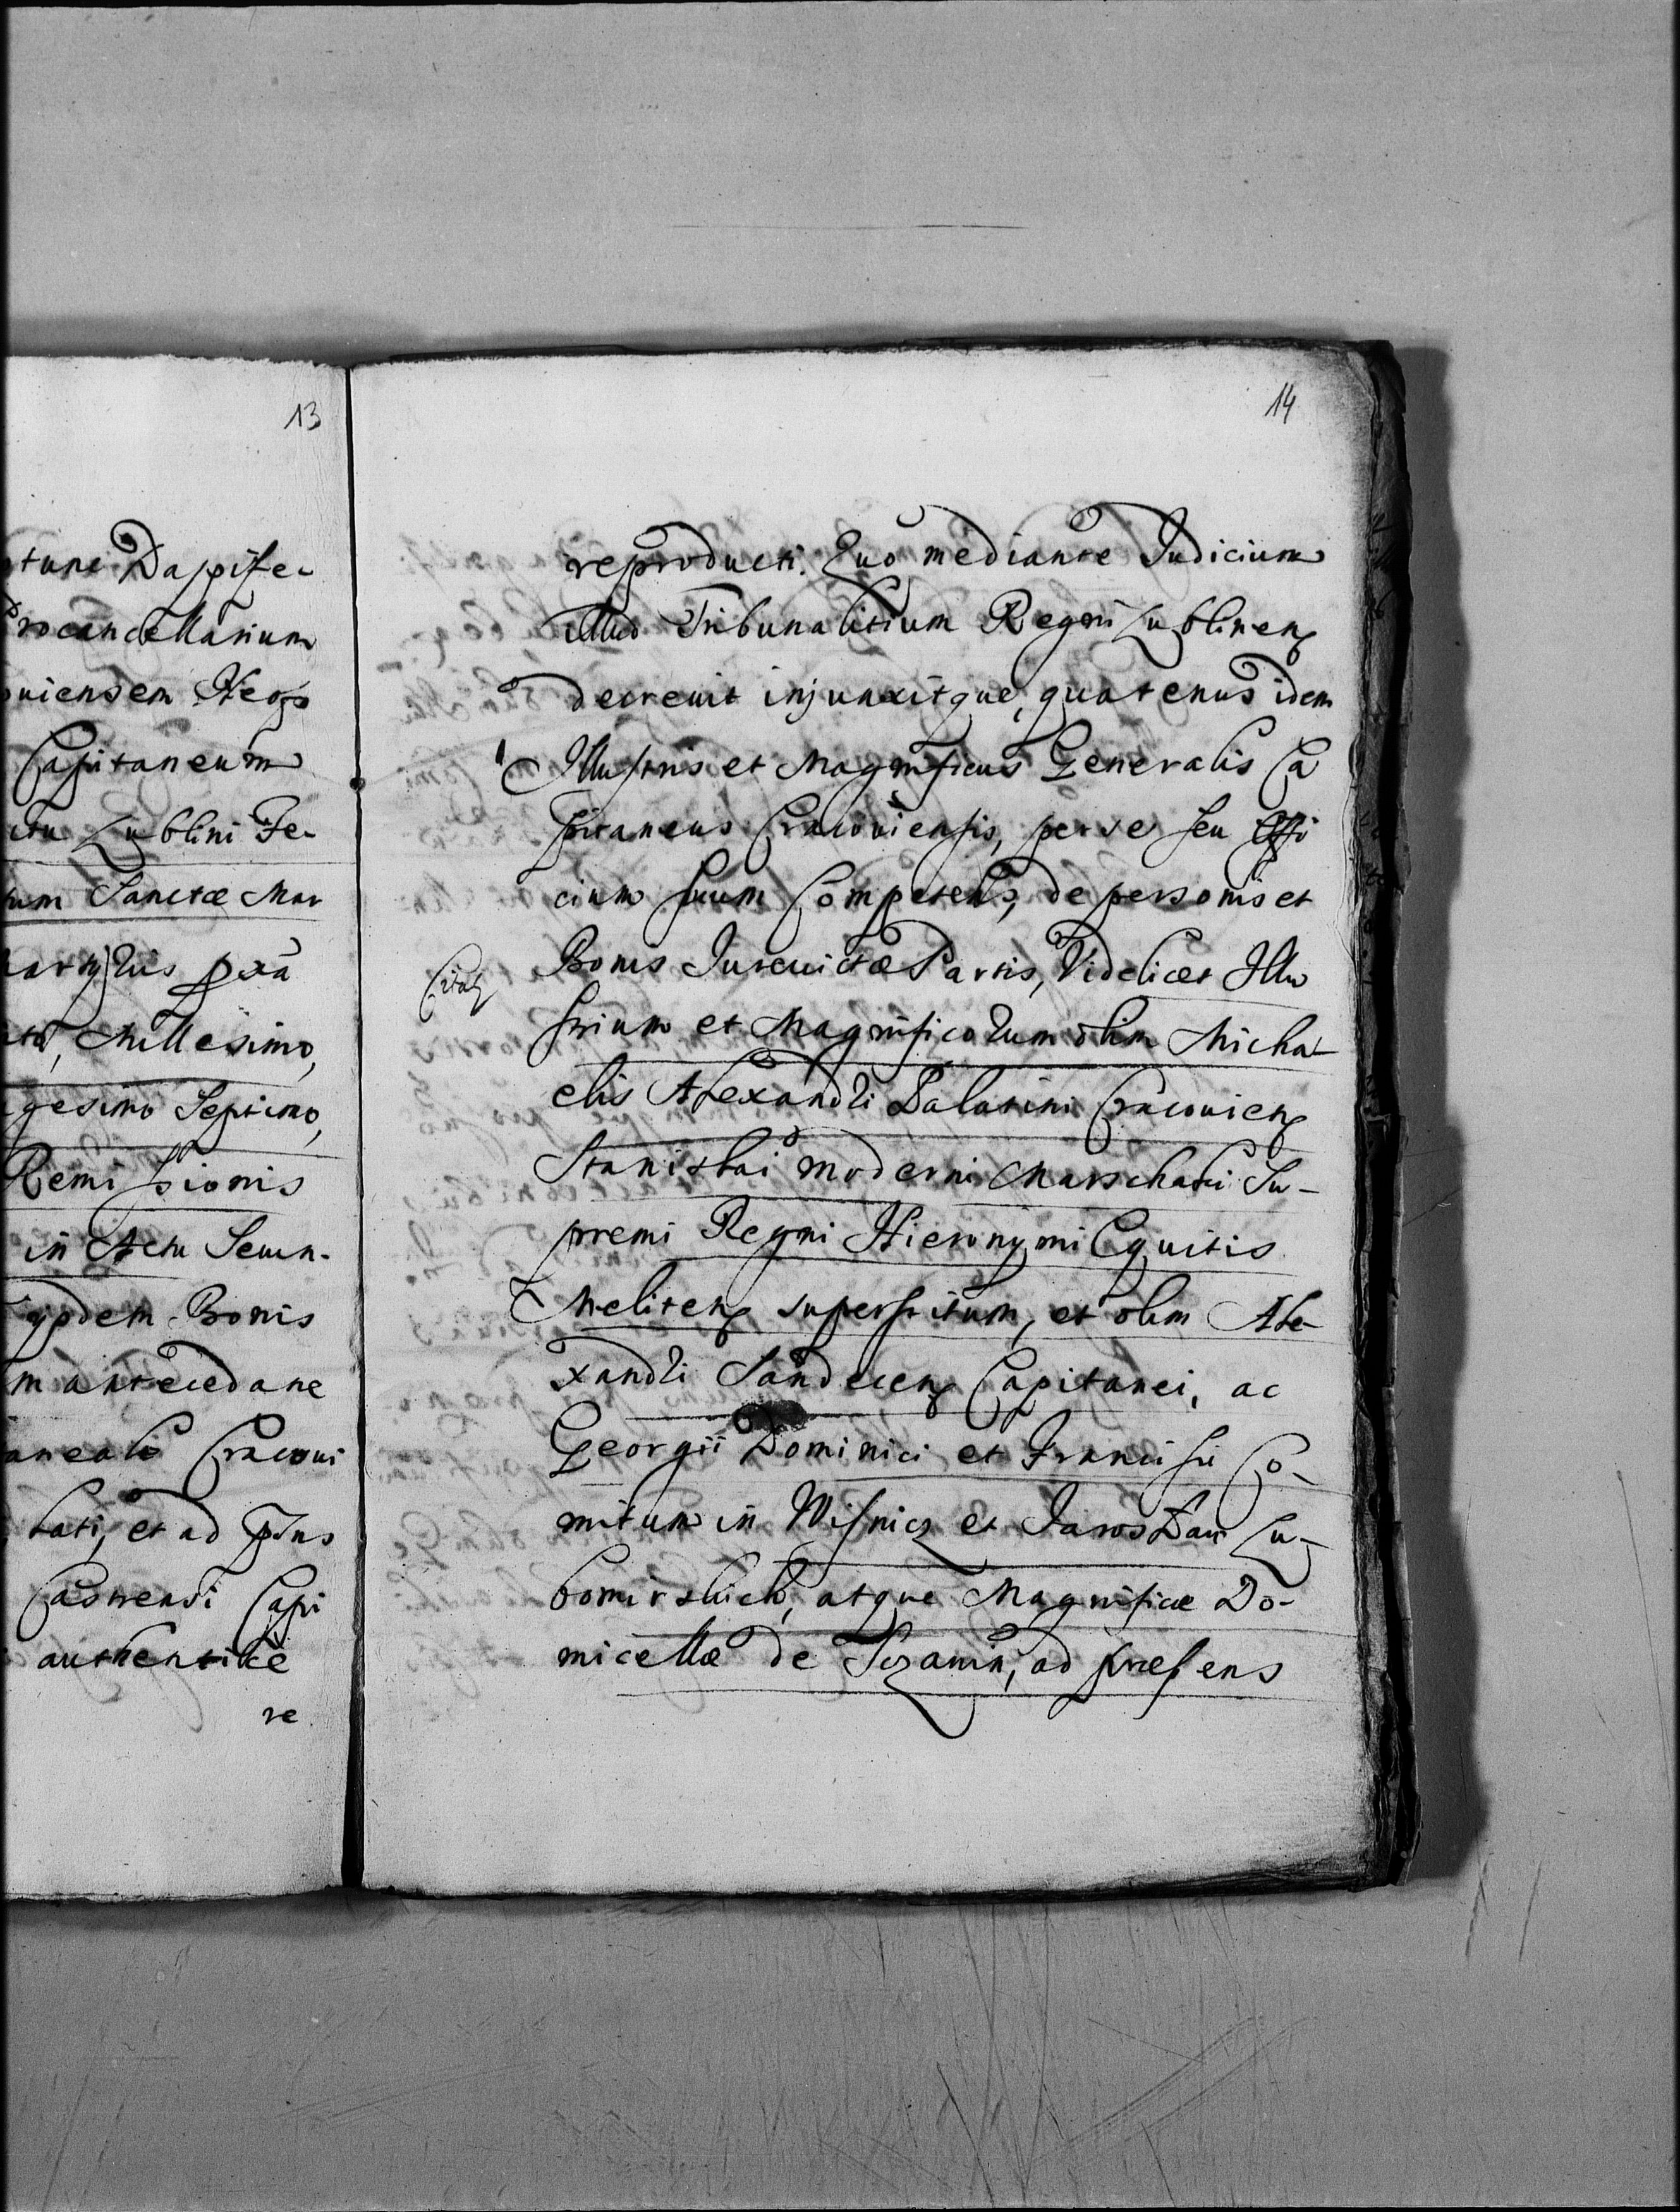 13
tunc Dapife-
rocancellarium
uiensem Neo
Capitaneum
Lublini Fe-
tum Sanctæ Mar
Millesimo,
gesimo Septimo,
Remissionis
in Actu Seren-
Bonis
m antecedane
aneali Cracoui
lati, et ad
Castrensi Capi
authentice
re
14
reproducti. Quo mediante Judicium
illud Tribunalitium Regni Lublinens
decreuit injunxitque, quatenus idem
Illustris et Magnificus Generalis Ca
pitaneus Cracouiensis, per se seu Offi
cium suum Competens, de personis et
Citatj
Bonis Jureuictæ Partis, Videlicet Illu
strium et Magnificorum olim Micha-
elis Alexandri Palatini Cracouiens
Stanislai moderni Marschalci Su-
premi Regni Hieronymi Equitis
Melitens superstitum, et olim Ale-
xandri Sandecens Capitanei, ac
Georgii Dominici et Francisci Co-
mitum in Wisnicz et Jaroslau Lu-
bomirskich, atque Magnificæ Do-
micellæ de Sczawin, ad præsens